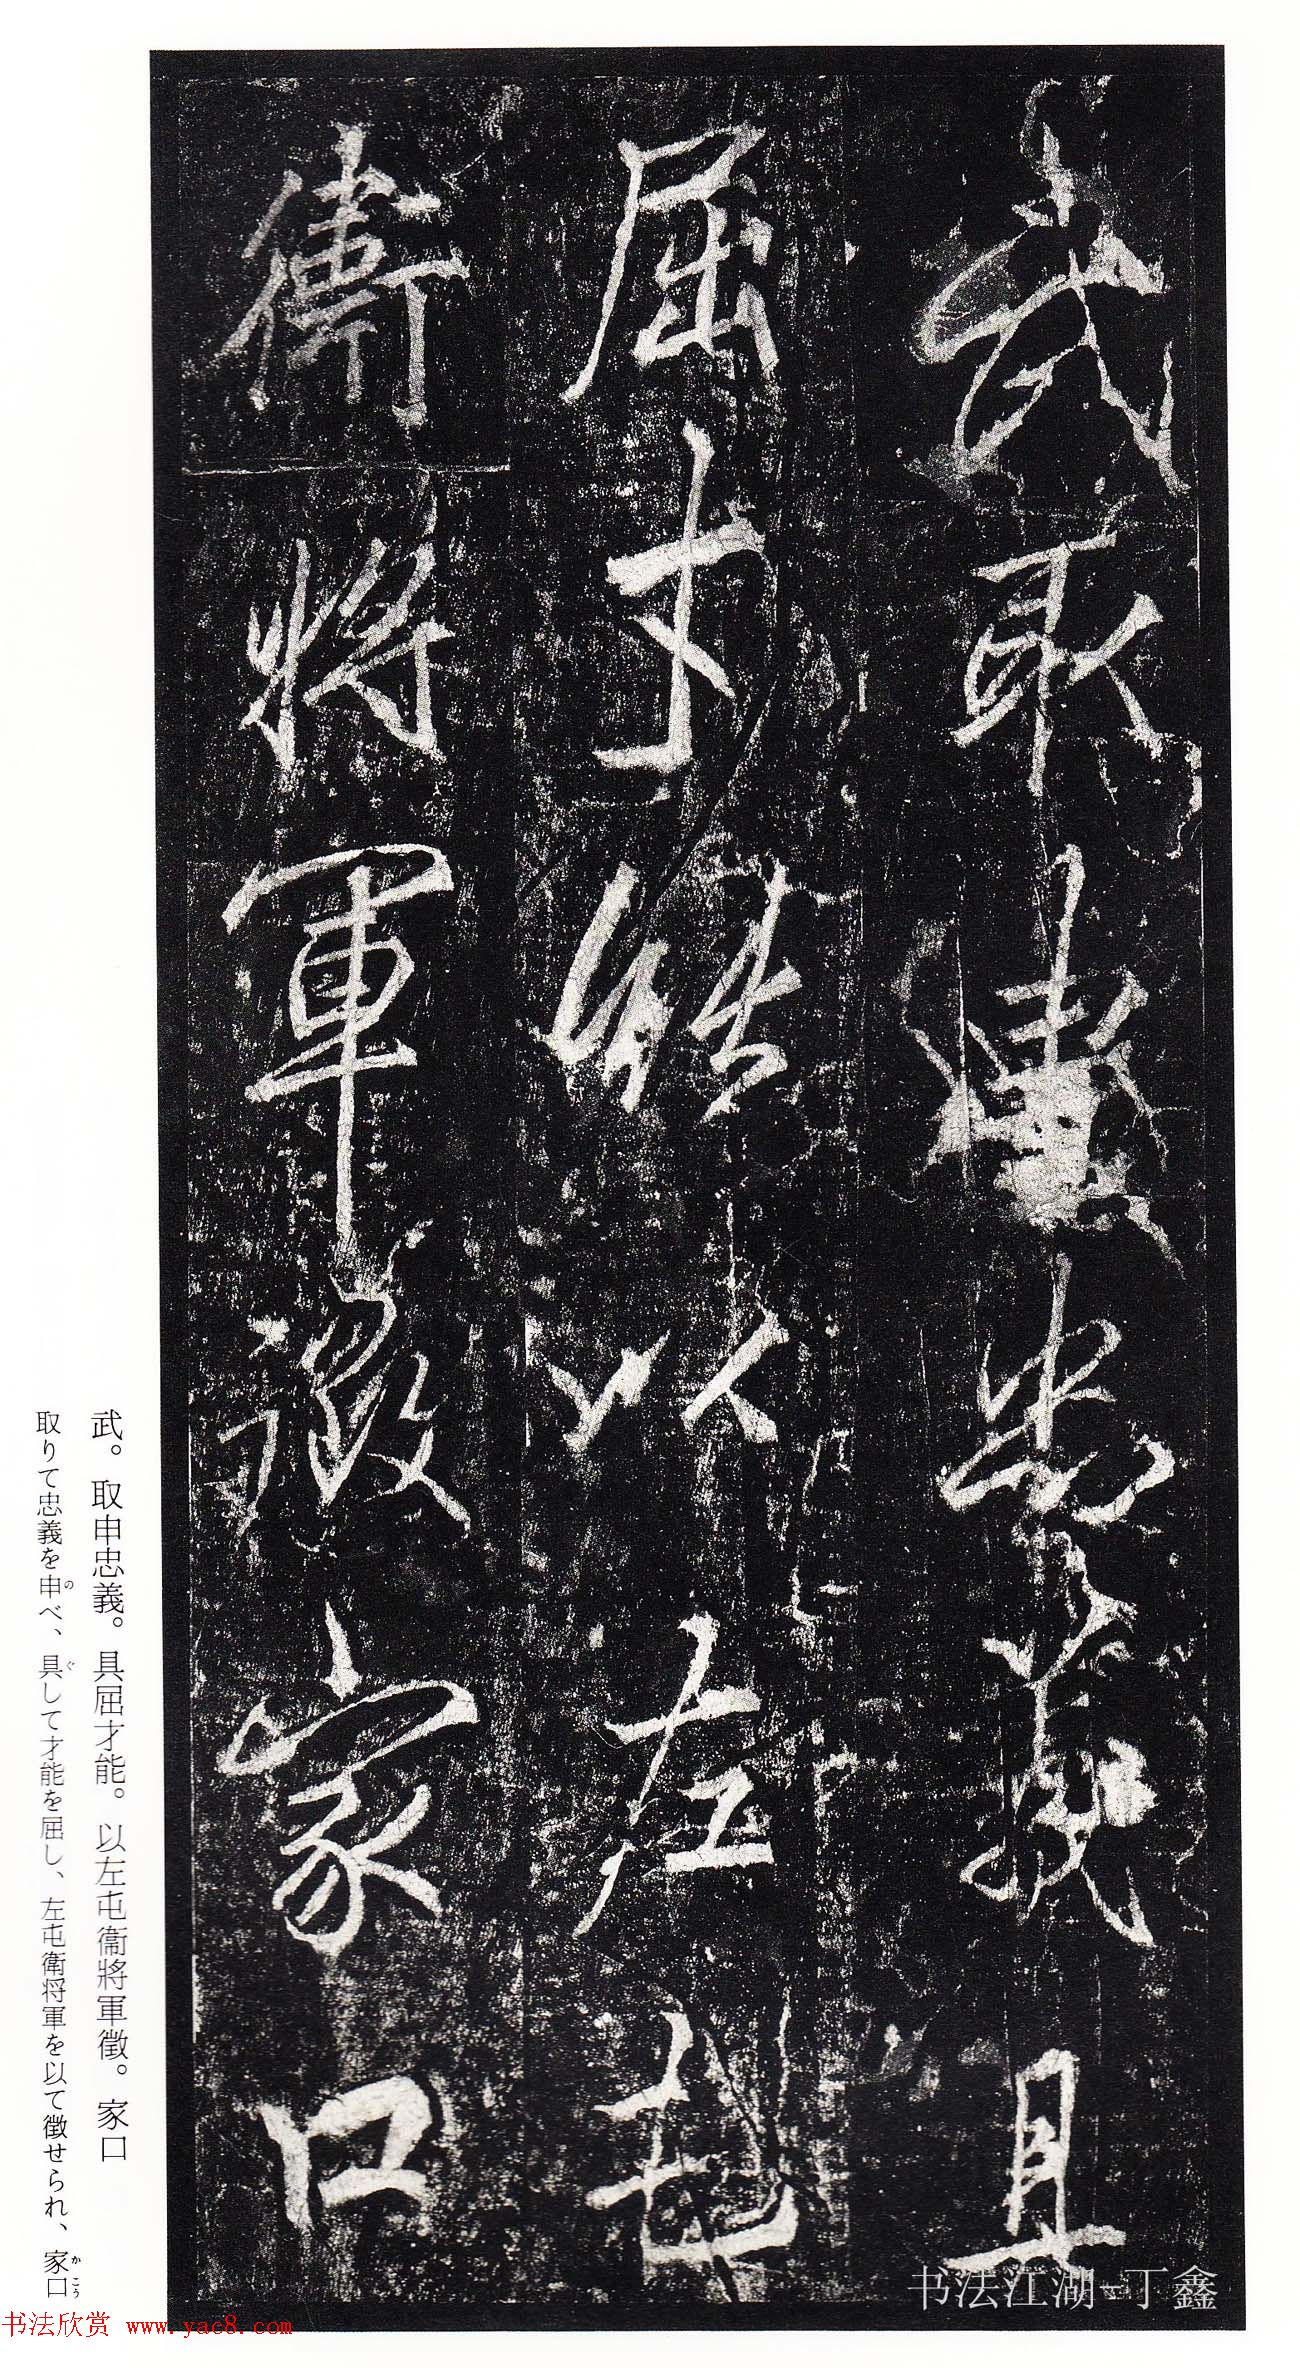 武取申忠義具
屈才能以左屯
衛將軍徵家口
武。取申忠義。具屈才能。以左屯衞將軍徵。家口
取りて忠義を申べ、具して才能を屈し、左屯衛将軍を以て徴せられ、家口
の
ぐ
かこう
书法江湖-丁鑫
书法欣赏 www.yac8.com